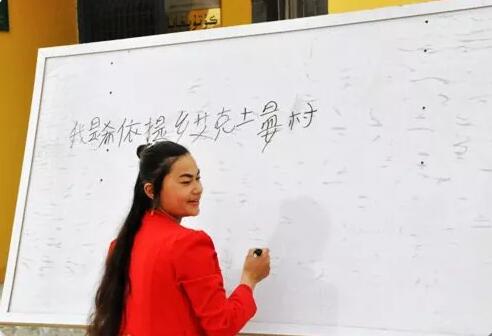 我是希依提乡艾克土曼村